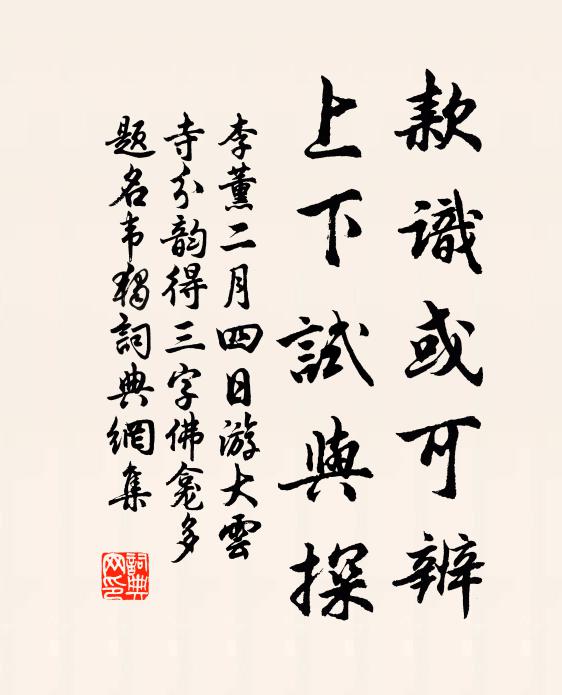 款識或可辨
上下試與探
李薰二月四日游大雲
寺分韵得三字佛龛多
題名韦獨詞典網集
詞典网印